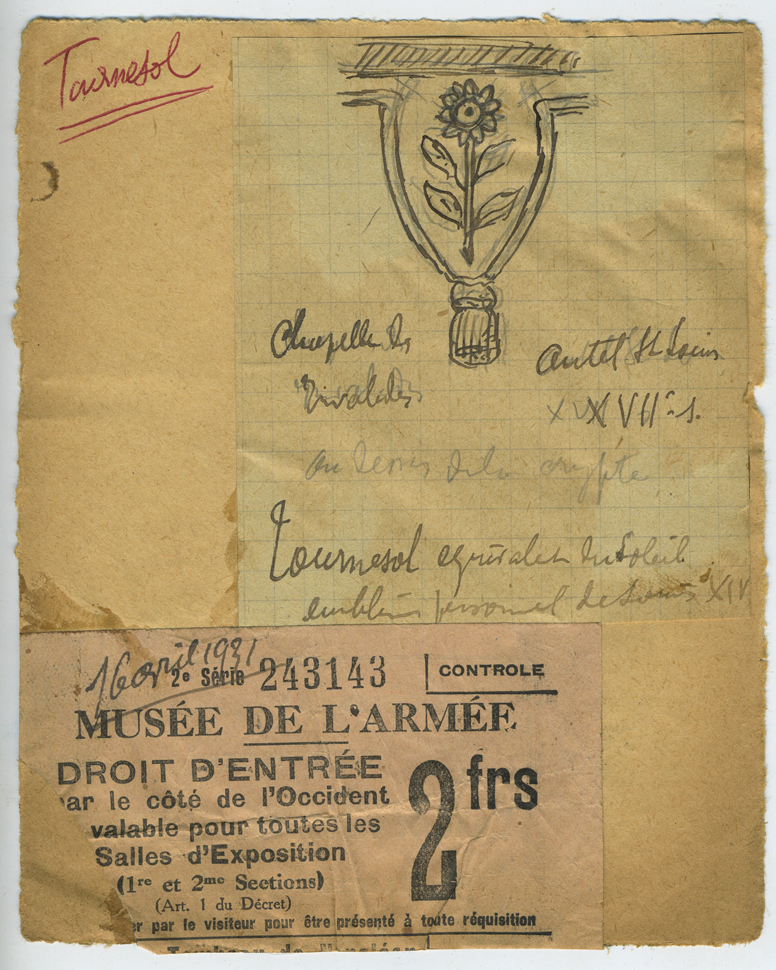 Tournesol
Chapelle des
Invalides
autel St Louis
XVII e s.
au dessus de la crypte
Tournesol équivalent du Soleil
emblème personnel de Louis XIV
16 avril 1931
2e Série 243143 CONTROLE
MUSÉE DE L'ARMÉE
DROIT D'ENTRÉE
ar le côté de l'Occident
valable pour toutes les
Salles d'Exposition
2 frs
(1re et 2me Sections)
(Art. 1 du Décret)
er par le visiteur pour être présenté à toute réquisition
Tombeau de